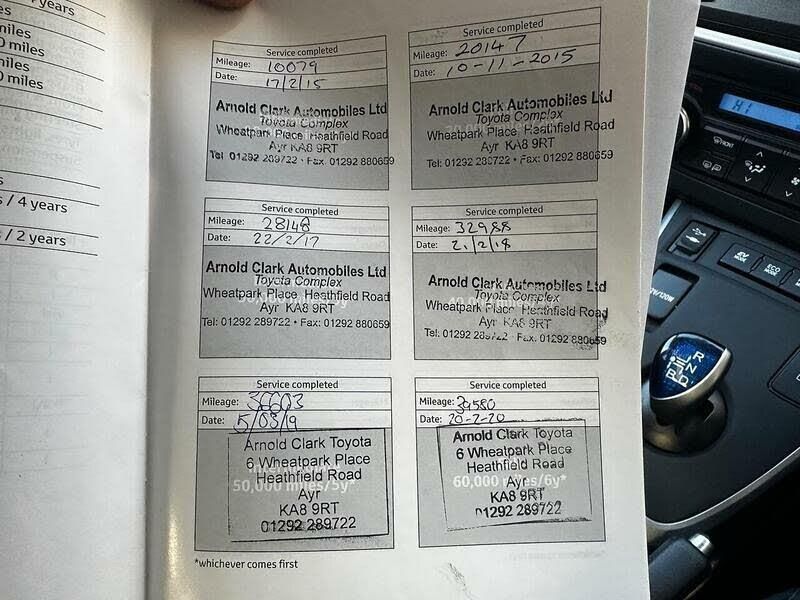 years
miles
0 miles
miles
0 miles
s
s / 4 years
s / 2 years
Service completed
Mileage: 10079
Date: 17/2/15
Arnold Clark Automobiles Ltd
Toyota Complex
Wheatpark Place, Heathfield Road
Ayr KA8 9RT
Tel: 01292 289722 • Fax: 01292 880659
Service completed
Mileage: 20147
Date: 10-11-2015
Arnold Clark Automobiles Ltd
Toyota Complex
Wheatpark Place, Heathfield Road
Ayr KA8 9RT
Tel: 01292 289722 • Fax: 01292 880659
Service completed
Mileage: 28148
Date: 22/2/17
Arnold Clark Automobiles Ltd
Toyota Complex
Wheatpark Place, Heathfield Road
Ayr KA8 9RT
Tel: 01292 289722 • Fax: 01292 880659
Service completed
Mileage: 32988
Date: 21/2/18
Arnold Clark Automobiles Ltd
Toyota Complex
Wheatpark Place, Heathfield Road
Ayr KA8 9RT
Tel: 01292 289722 • Fax: 01292 880659
40,000 miles/4y*
Service completed
Mileage: 36603
Date: 5/03/19
Arnold Clark Toyota
6 Wheatpark Place
Heathfield Road
50,000 miles/5y*
Ayr
KA8 9RT
01292 289722
Service completed
Mileage: 39580
Date: 20-2-20
Arnold Clark Toyota
6 Wheatpark Place
Heathfield Road
60,000 miles/6y*
Ayr
KA8 9RT
01292 289722
*whichever comes first
HI
FRONT
EV MODE
ECO MODE
R
N
B D